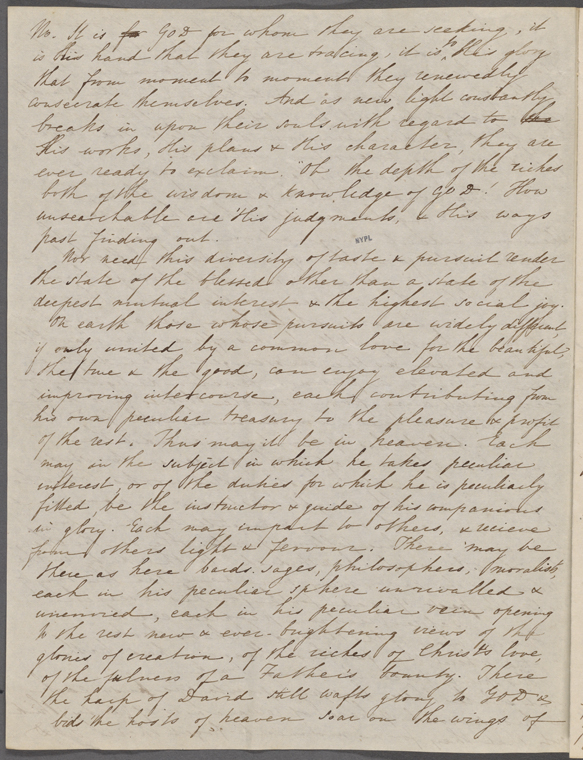 No. It is for GOD for whom they are seeking, it
is His hand that they are tracing, it is to His glory
that from moment to moment they renewedly
consecrate themselves. And as new light constantly
breaks in upon their souls with regard to the
His works, His plans & His character, they are
ever ready to exclaim. "Oh the depth of the riches
both of the wisdom & knowledge of GOD! How
unsearchable are His judgments, & His ways
past finding out.
NYPL
Nor need this diversity of taste & pursuit render
the state of the blessed other than a state of the
deepest mutual interest & the highest social joy.
On earth those whose pursuits are widely different,
if only united by a common love for the beautiful,
the true & the good, can enjoy elevated and
improving intercourse, each contributing from
his own peculiar treasury to the pleasure & profit
of the rest. Thus may it be in heaven. Each
may in the subject in which he takes peculiar
interest, or of the duties for which he is peculiarly
fitted, be the instructor & guide of his companions
in glory. Each may impart to others, & recieve
from others light & fervour. There may be
there as here bards, sages, philosophers, moralists,
each in his peculiar sphere unrivalled &
unenvied, each in his peculiar vein opening
to the rest new & ever-brightening views of the
glories of creation, of the riches of Christ's love,
of the fulness of a Father's bounty. There
the harp of David still wafts glory to GOD &
bids the hosts of heaven soar on the wings of